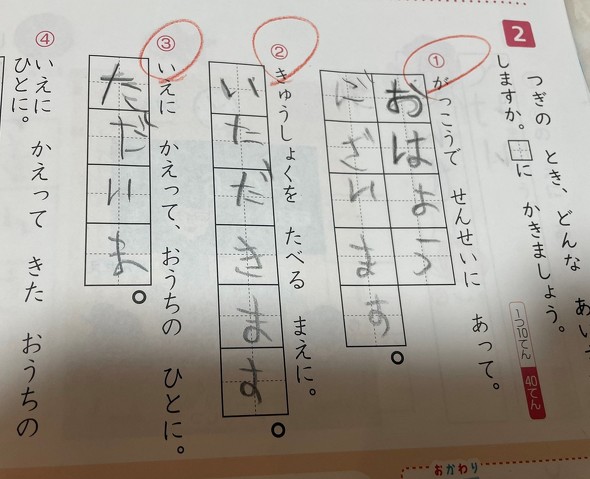 2
つぎの とき、どんな あい
しますか。□に かきましょう。
1つ10てん
40てん
① がっこうで せんせいに あって。
おはよう
ございます。
② きゅうしょくを たべる まえに。
いただきます。
③ いえに かえって、おうちの ひとに。
ただいま。
④ いえに かえって きた おうちの
ひとに。
おかわり